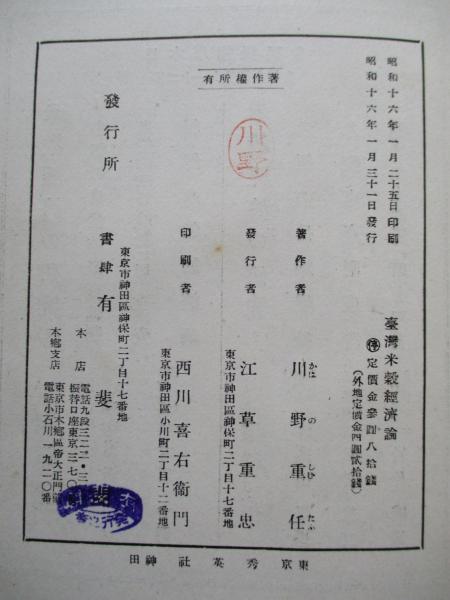 昭和十六年一月二十五日印刷
昭和十六年一月三十一日發行
臺灣米穀經濟論
停定價金參圓八拾錢
(外地定價金四圓貳拾錢)
著作權所有
川野
著作者 川野重任
かはのしげたふ
發行者 江草重忠
東京市神田區神保町二丁目十七番地
印刷者 西川喜右衞門
東京市神田區小川町二丁目十二番地
發行所
東京市神田區神保町二丁目十七番地
書肆 有斐
本店 電話九段
振替口座東京三七〇
本鄕支店 東京市本鄕區帝大正門
電話小石川一九二〇番
東京 秀英社 神田